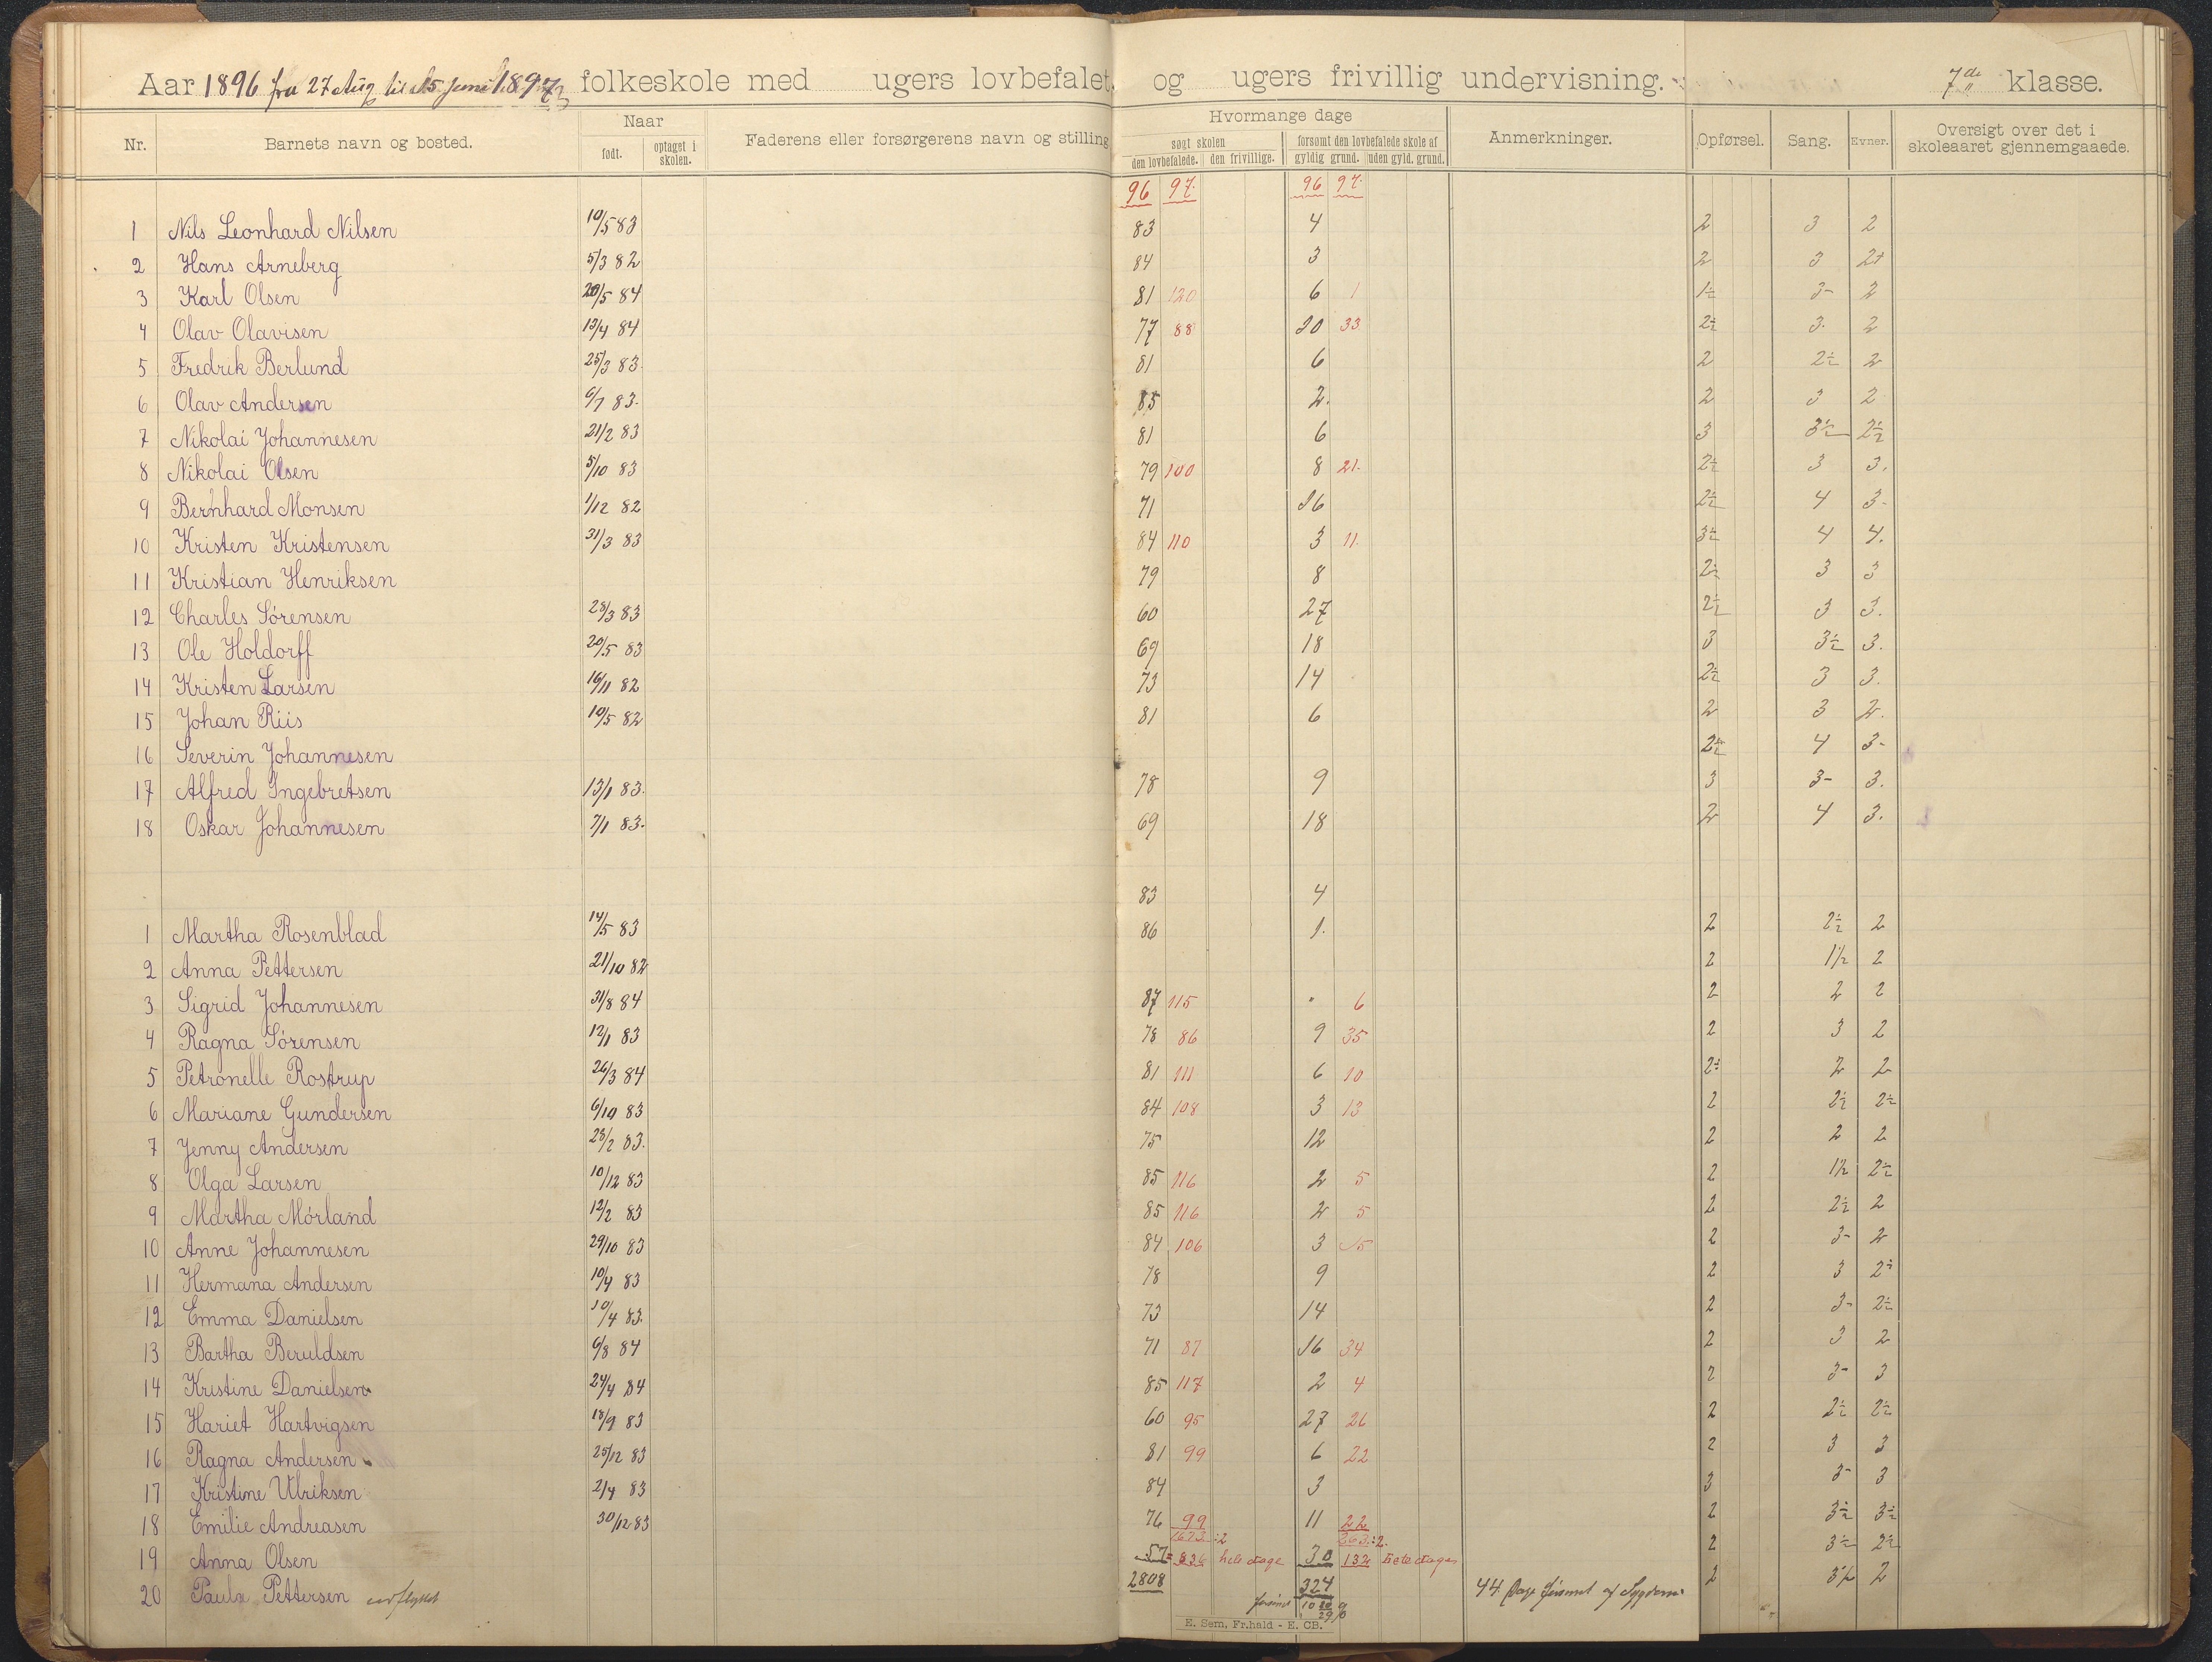 Aar 1896 fra 27 Aug til 15 Juni 1897 folkeskole med ugers lovbefalet og ugers frivillig undervisning. 7de klasse.
Nr. Barnets navn og bosted. Naar født. optaget i skolen. Faderens eller forsørgerens navn og stilling Hvormange dage søgt skolen den lovbefalede. den frivillige. forsømt den lovbefalede skole af gyldig grund. uden gyld. grund. Anmerkninger. Opførsel. Sang. Evner. Oversigt over det i skoleaaret gjennemgaaede.
96 97. 96 97.
1 Nils Leonhard Nilsen 10/5 83 83 4 2 3 2
2 Hans Arneberg 5/3 82 84 3 2 3 2+
3 Karl Olsen 20/5 84 81 120 6 1 1½ 3- 2
4 Olav Olavisen 13/4 84 77 88 10 33 2½ 3. 2
5 Fredrik Berlund 25/3 83. 81 6 2 2½ 2
6 Olav Andersen 6/7 83. 85 2. 2 3 2
7 Nikolai Johannesen 21/2 83 81 6 3 3½ 2½
8 Nikolai Olsen 5/10 83 79 100 8 21. 2½ 3 3.
9 Bernhard Monsen 1/12 82 71 16 2½ 4 3-
10 Kristen Kristensen 31/3 83 84 110 3 11. 3½ 4 4.
11 Kristian Henriksen 79 8 2½ 3 3
12 Charles Sørensen 28/3 83 60 27 2½ 3 3.
13 Ole Holdorff 20/5 83 69 18 3 3½ 3.
14 Kristen Larsen 16/11 82 73 14 2½ 3 3.
15 Johan Riis 10/5 82 81 6 2 3 2.
16 Severin Johannesen 2½ 4 3-
17 Alfred Ingebretsen 13/1 83. 78 9 3 3- 3.
18 Oskar Johannesen 7/1 83. 69 18 2 4 3.
83 4
1 Martha Rosenblad 14/5 83 86 1. 2 2½ 2
2 Anna Pettersen 21/10 82 2 1½ 2
3 Sigrid Johannesen 31/8 84 87 115 " 6 2 2 2
4 Ragna Sørensen 12/1 83 78 86 9 35 2 3 2
5 Petronelle Rostrup 26/3 84 81 111 6 10 2½ 2 2
6 Mariane Gundersen 6/10 83 84 108 3 13 2 2½ 2½
7 Jenny Andersen 23/2 83. 75 12 2 2 2
8 Olga Larsen 10/12 83 85 116 2 5 2 1½ 2½
9 Martha Mørland 12/2 83 85 116 2 5 2 2½ 2
10 Anne Johannesen 29/10 83 84 106 3 15 2 3- 2
11 Hermana Andersen 10/4 83 78 9 2 3 2½
12 Emma Danielsen 10/4 83. 73 14 2 3- 2½
13 Bartha Beruldsen 6/8 84 71 87 16 34 2 3 2
14 Kristine Danielsen 24/4 84 85 117 2 4 2 3- 3
15 Hariet Hartvigsen 18/9 83 60 95 27 26 2 2½ 2½
16 Ragna Andersen 25/12 83 81 99 6 22 2 3 3
17 Kristine Ulriksen 2/4 83 84 3 3 3- 3
18 Emilie Andreasen 30/12 83 76 99 11 22 2 3½ 3½
1673:2 263:2.
19 Anna Olsen 57 = 836 hele dage 30 132 hele dage 2 3½ 2½
2808 324
20 Paula Pettersen 44 Dage forsømt af Sygdom 2 3½ 2
E. Sem, Fr.hald - E. CB.